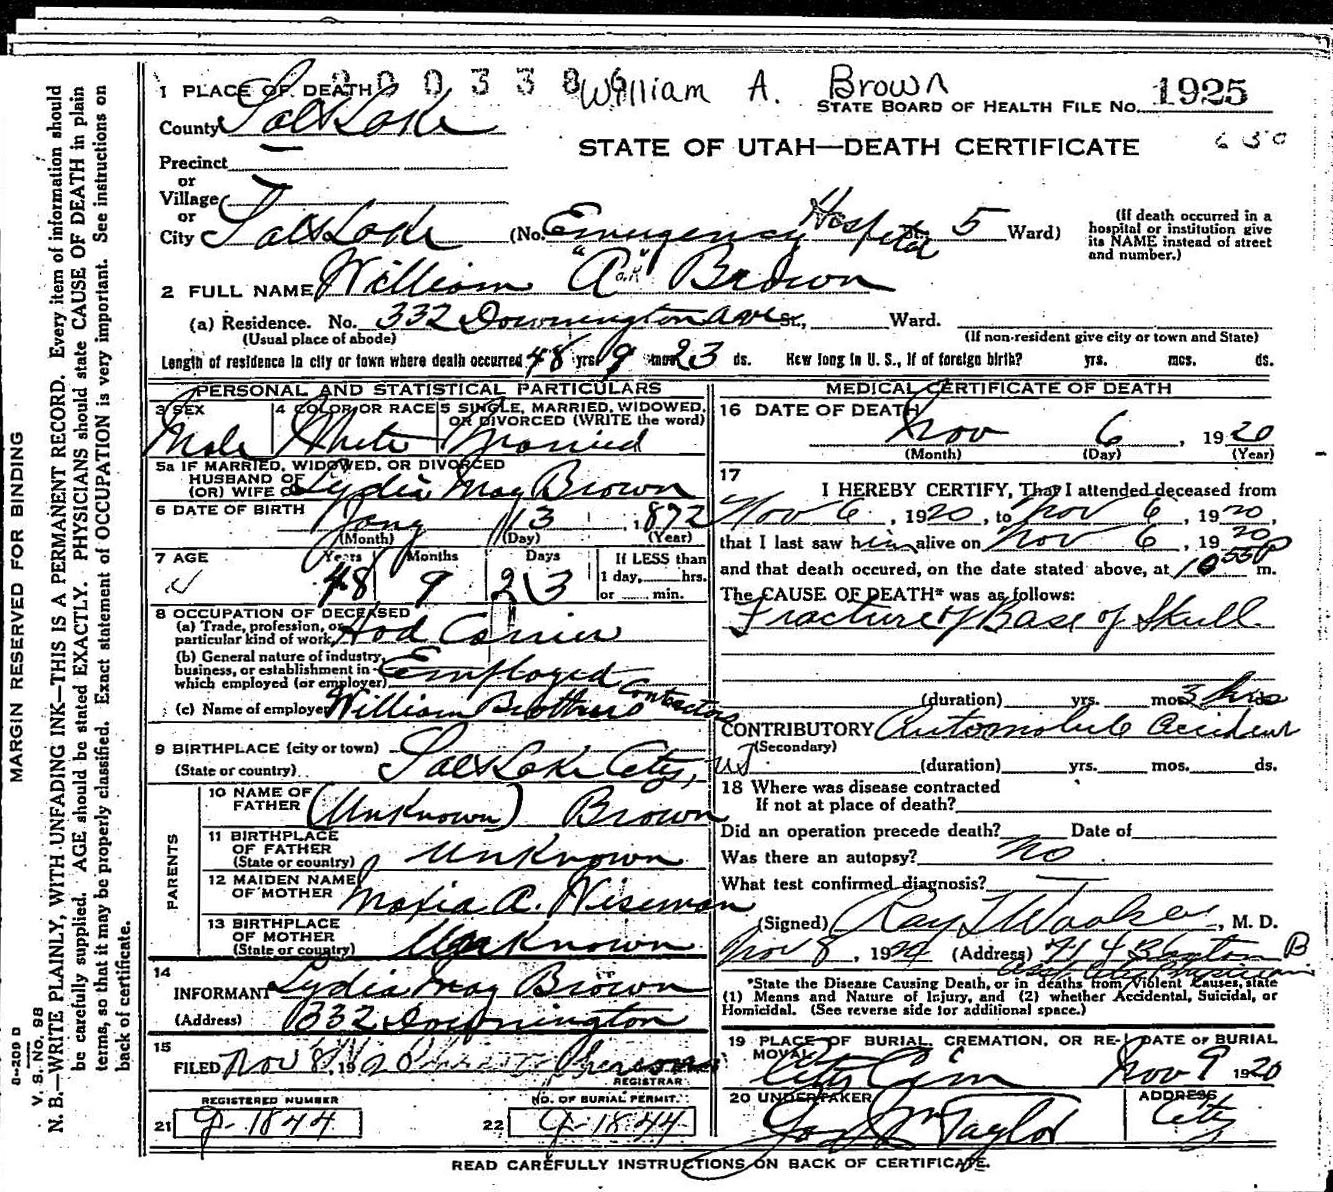 200338 William A. Brown
1 PLACE OF DEATH
STATE BOARD OF HEALTH FILE No. 1925
County Salt Lake
STATE OF UTAH—DEATH CERTIFICATE
Precinct
or
Village
or
City Salt Lake (No. Emergency Hospital St., 5 Ward)
(If death occurred in a hospital or institution give its NAME instead of street and number.)
2 FULL NAME William "A" Brown
(a) Residence. No. 332 Downington Ave St., Ward.
(Usual place of abode) (If non-resident give city or town and State)
Length of residence in city or town where death occurred 48 yrs. 9 mos. 23 ds. How long in U. S., if of foreign birth? yrs. mos. ds.
PERSONAL AND STATISTICAL PARTICULARS
3 SEX Male
4 COLOR OR RACE White
5 SINGLE, MARRIED, WIDOWED, OR DIVORCED (WRITE the word) Married
5a IF MARRIED, WIDOWED, OR DIVORCED
HUSBAND OF
(OR) WIFE OF Lydia May Brown
6 DATE OF BIRTH Jany 13, 1872
(Month) (Day) (Year)
7 AGE Years 48 Months 9 Days 23
If LESS than
1 day, hrs.
or min.
8 OCCUPATION OF DECEASED
(a) Trade, profession, or
particular kind of work, Hod Carrier
(b) General nature of industry,
business, or establishment in
which employed (or employer) Employed
(c) Name of employer William Brothers Contractors
9 BIRTHPLACE (city or town)
(State or country) Salt Lake City, UT
PARENTS
10 NAME OF
FATHER (Unknown) Brown
11 BIRTHPLACE
OF FATHER
(State or country) Unknown
12 MAIDEN NAME
OF MOTHER A. Wiseman
13 BIRTHPLACE
OF MOTHER
(State or country) Unknown
14
INFORMANT Lydia May Brown
(Address) 332 Downington
15
FILED Nov 8, 19
REGISTRAR
REGISTERED NUMBER
21 9-1844
NO. OF BURIAL PERMIT.
22 9-1844
MEDICAL CERTIFICATE OF DEATH
16 DATE OF DEATH
Nov 6, 1920
(Month) (Day) (Year)
17
I HEREBY CERTIFY, That I attended deceased from
Nov 6, 1920, to Nov 6, 1920,
that I last saw him alive on Nov 6, 1920
and that death occured, on the date stated above, at 10 55 P m.
The CAUSE OF DEATH* was as follows:
Fracture of Base of Skull
(duration) yrs. mos. 3 hrs ds.
CONTRIBUTORY Automobile accident
(Secondary)
(duration) yrs. mos. ds.
18 Where was disease contracted
If not at place of death?
Did an operation precede death? Date of
Was there an autopsy? no
What test confirmed diagnosis?
(Signed) Ray T Woolsey, M. D.
Nov 8, 19 (Address) 714 B
Asst City Physician
*State the Disease Causing Death, or in deaths from Violent Causes, state
(1) Means and Nature of Injury, and (2) whether Accidental, Suicidal, or
Homicidal. (See reverse side for additional space.)
19 PLACE OF BURIAL, CREMATION, OR RE-
MOVAL City Cem
DATE OF BURIAL
Nov 9 1920
20 UNDERTAKER
Jos Wm Taylor
ADDRESS
City
READ CAREFULLY INSTRUCTIONS ON BACK OF CERTIFICATE.
MARGIN RESERVED FOR BINDING
S-209 D
V. S. No. 98
N. B.—WRITE PLAINLY, WITH UNFADING INK—THIS IS A PERMANENT RECORD. Every item of information should
be carefully supplied. AGE should be stated EXACTLY. PHYSICIANS should state CAUSE OF DEATH in plain
terms, so that it may be properly classified. Exact statement of OCCUPATION is very important. See instructions on
back of certificate.